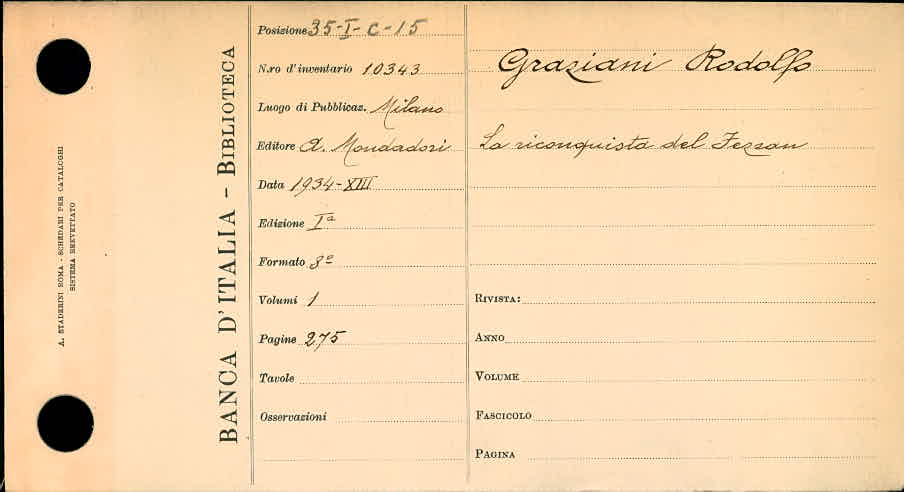 A. STADERINI ROMA - SCHEDARI PER CATALOGHI
SISTEMA BREVETTATO
BANCA D'ITALIA - BIBLIOTECA
Posizione 35-I-C-15
N.ro d'inventario 10343
Luogo di Pubblicaz. Milano
Editore A. Mondadori
Data 1934-XIII
Edizione Iª
Formato 8º
Volumi 1
Pagine 275
Tavole
Osservazioni
Graziani Rodolfo
La riconquista del Fezzan
RIVISTA:
ANNO
VOLUME
FASCICOLO
PAGINA